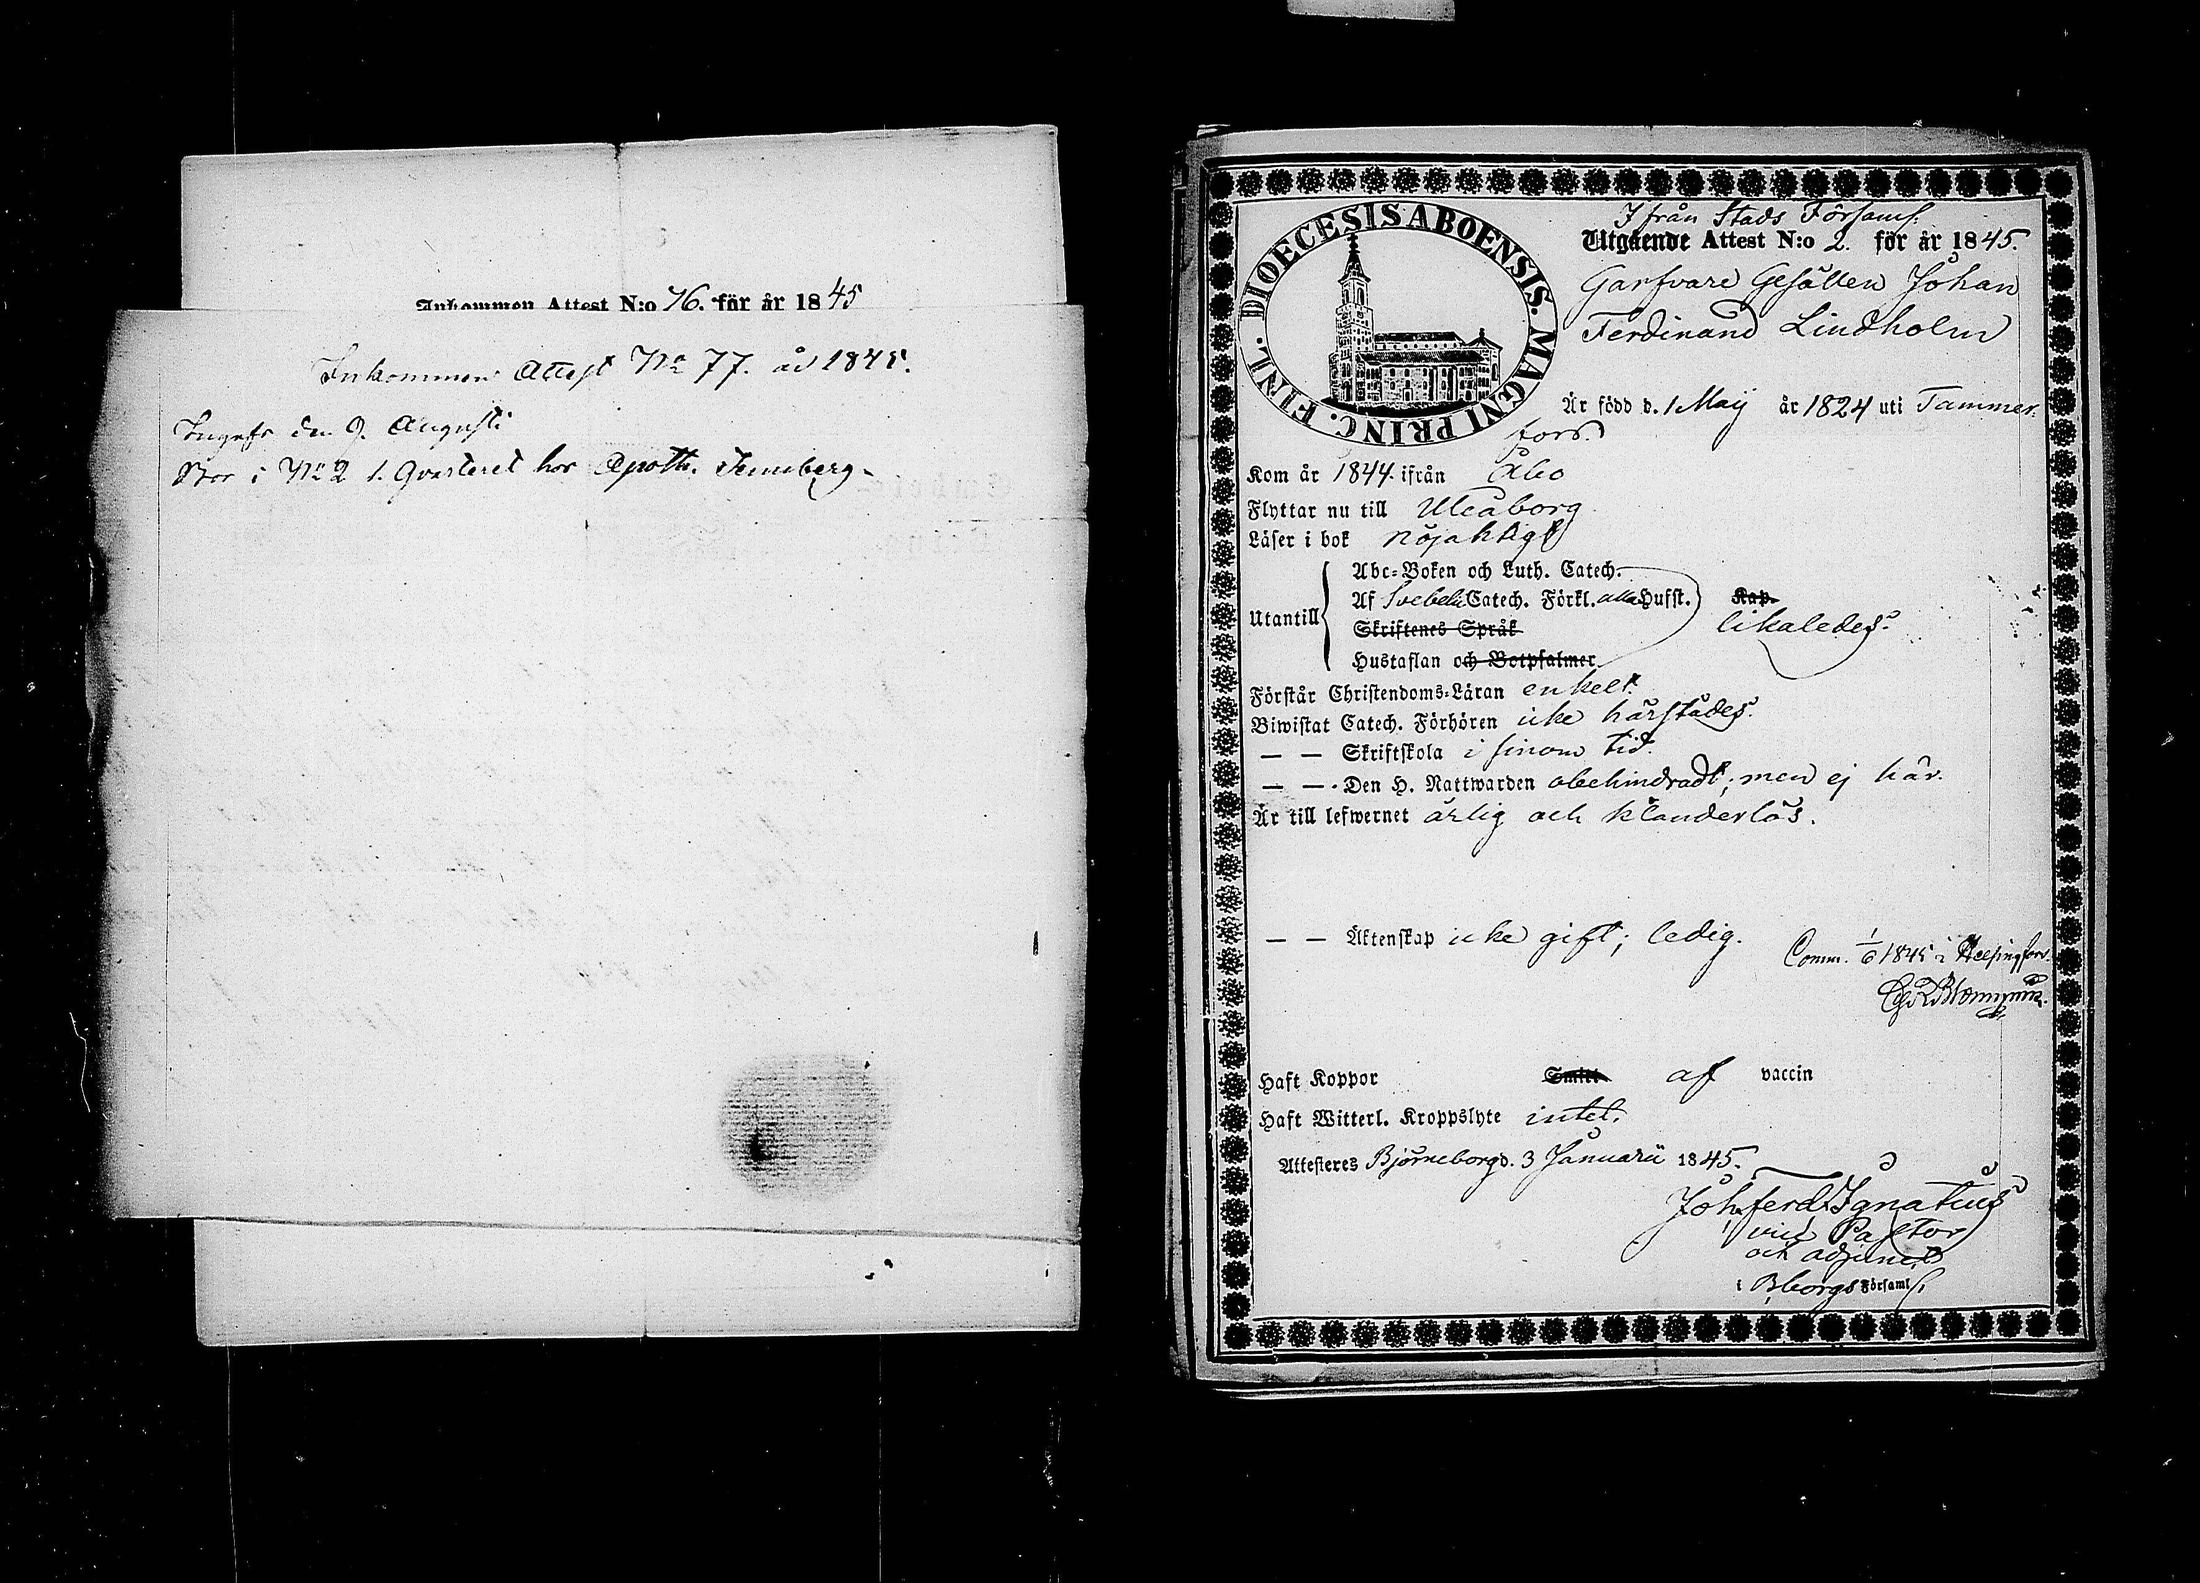 Inkommen Attest N:o 76. för år 1845
Inkommen Attest No 77. år 1845.
Ingifs den 9. Augusti
Bor i No 2 1. Qvarteret hos Apoth.
DIOECESIS ABOENSIS. MAGNI PRINC. FINL.
Ifrån Stads Församl.
Utgående Attest N:o 2. för år 1845.
Garfvare Gesällen Johan
Ferdinand Lindholm
Är född d. 1 Maij år 1824 uti Tammer-
fors.
Kom år 1844. ifrån Åbo
Flyttar nu till Uleåborg
Läser i bok nöjaktigt
Abc-Boken och Luth. Catech.
Utantill Af Svebelii Catech. Förkl. alla Hufst. Kap.
likaledes.
Skriftenes Språk
Hustaflan och Botpsalmer
Förstår Christendoms-Läran enkelt.
Biwistat Catech. Förhören icke härstädes.
— — Skriftskola i sinom tid.
— — Den H. Nattwarden obehindradt; men ej här.
Är till lefwernet ärlig och klanderlös.
— — Äktenskap icke gift; ledig.
Comm. 1/6 1845 i Helsingfors.
Haft Koppor Smitt af vaccin
Haft Witterl. Kroppslyte intet.
Attesteras Björneborg d. 3 Januarii 1845.
Joh. Ferd. Ignatius
vice Pastor
och adjunct
i Bborgs Församl.